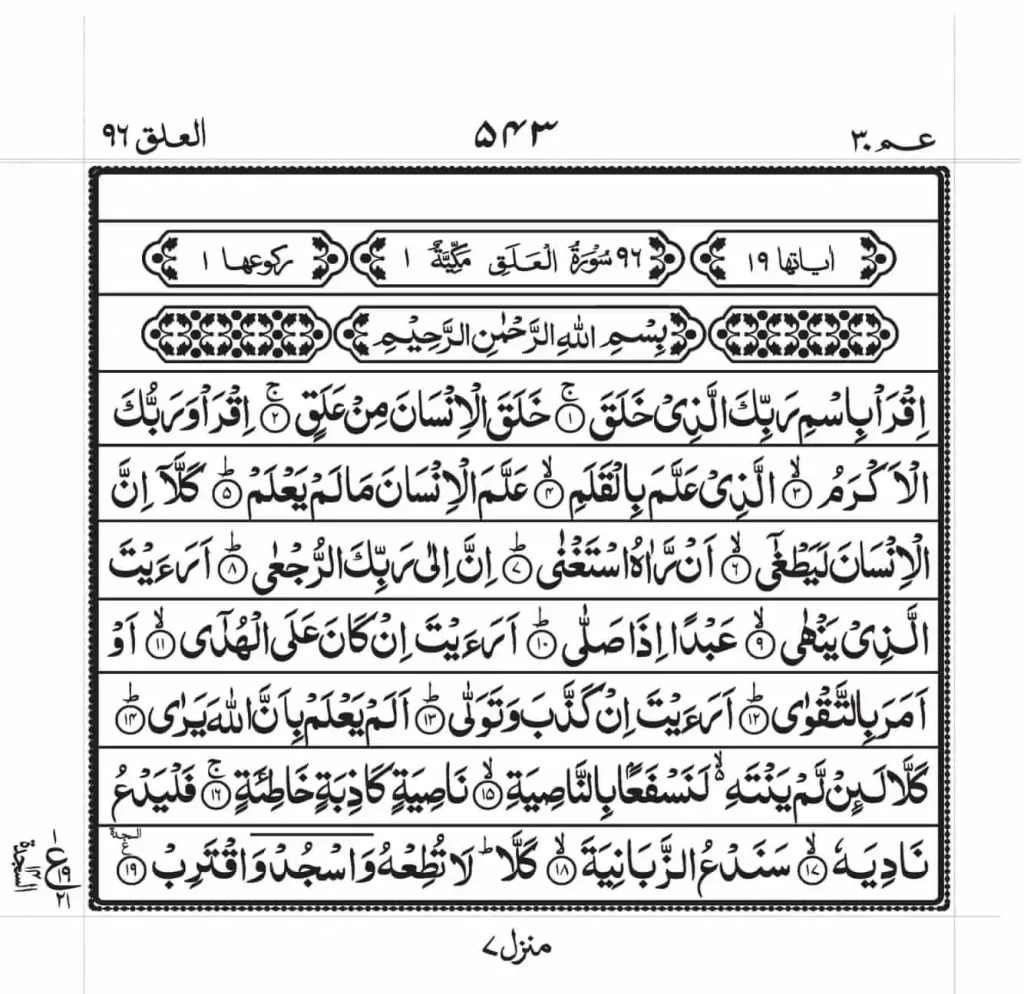 عـمـ ٣٠ ۵۴۳ العلق ٩٦
اٰیاتها ١٩ ٩٦ سُوْرَةُ الْعَلَقِ مَكِّیَّةٌ ١ رکوعها ١
بِسْمِ اللّٰهِ الرَّحْمٰنِ الرَّحِیْمِ
اِقْرَاْ بِاسْمِ رَبِّكَ الَّذِیْ خَلَقَ ۚ﴿۱﴾ خَلَقَ الْاِنْسَانَ مِنْ عَلَقٍ ۚ﴿۲﴾ اِقْرَاْ وَرَبُّكَ
الْاَكْرَمُ ۙ﴿۳﴾ الَّذِیْ عَلَّمَ بِالْقَلَمِ ۙ﴿۴﴾ عَلَّمَ الْاِنْسَانَ مَا لَمْ یَعْلَمْ ؕ﴿۵﴾ كَلَّاۤ اِنَّ
الْاِنْسَانَ لَیَطْغٰۤی ۙ﴿۶﴾ اَنْ رَّاٰهُ اسْتَغْنٰی ؕ﴿۷﴾ اِنَّ اِلٰی رَبِّكَ الرُّجْعٰی ؕ﴿۸﴾ اَرَءَیْتَ
الَّذِیْ یَنْهٰی ۙ﴿۹﴾ عَبْدًا اِذَا صَلّٰی ؕ﴿۱۰﴾ اَرَءَیْتَ اِنْ كَانَ عَلَی الْهُدٰۤی ۙ﴿۱۱﴾ اَوْ
اَمَرَ بِالتَّقْوٰی ؕ﴿۱۲﴾ اَرَءَیْتَ اِنْ كَذَّبَ وَ تَوَلّٰی ؕ﴿۱۳﴾ اَلَمْ یَعْلَمْ بِاَنَّ اللّٰهَ یَرٰی ؕ﴿۱۴﴾
كَلَّا لَىِٕنْ لَّمْ یَنْتَهِ ۙ۬ لَنَسْفَعًۢا بِالنَّاصِیَةِ ۙ﴿۱۵﴾ نَاصِیَةٍ كَاذِبَةٍ خَاطِئَةٍ ۚ﴿۱۶﴾ فَلْیَدْعُ
نَادِیَهٗ ۙ﴿۱۷﴾ سَنَدْعُ الزَّبَانِیَةَ ۙ﴿۱۸﴾ كَلَّا ؕ لَا تُطِعْهُ وَ اسْجُدْ وَ اقْتَرِبْ ﴿۱۹﴾ السجدة
١ ع ١٩ ٢١
السجدة ١٤
منزل ٧